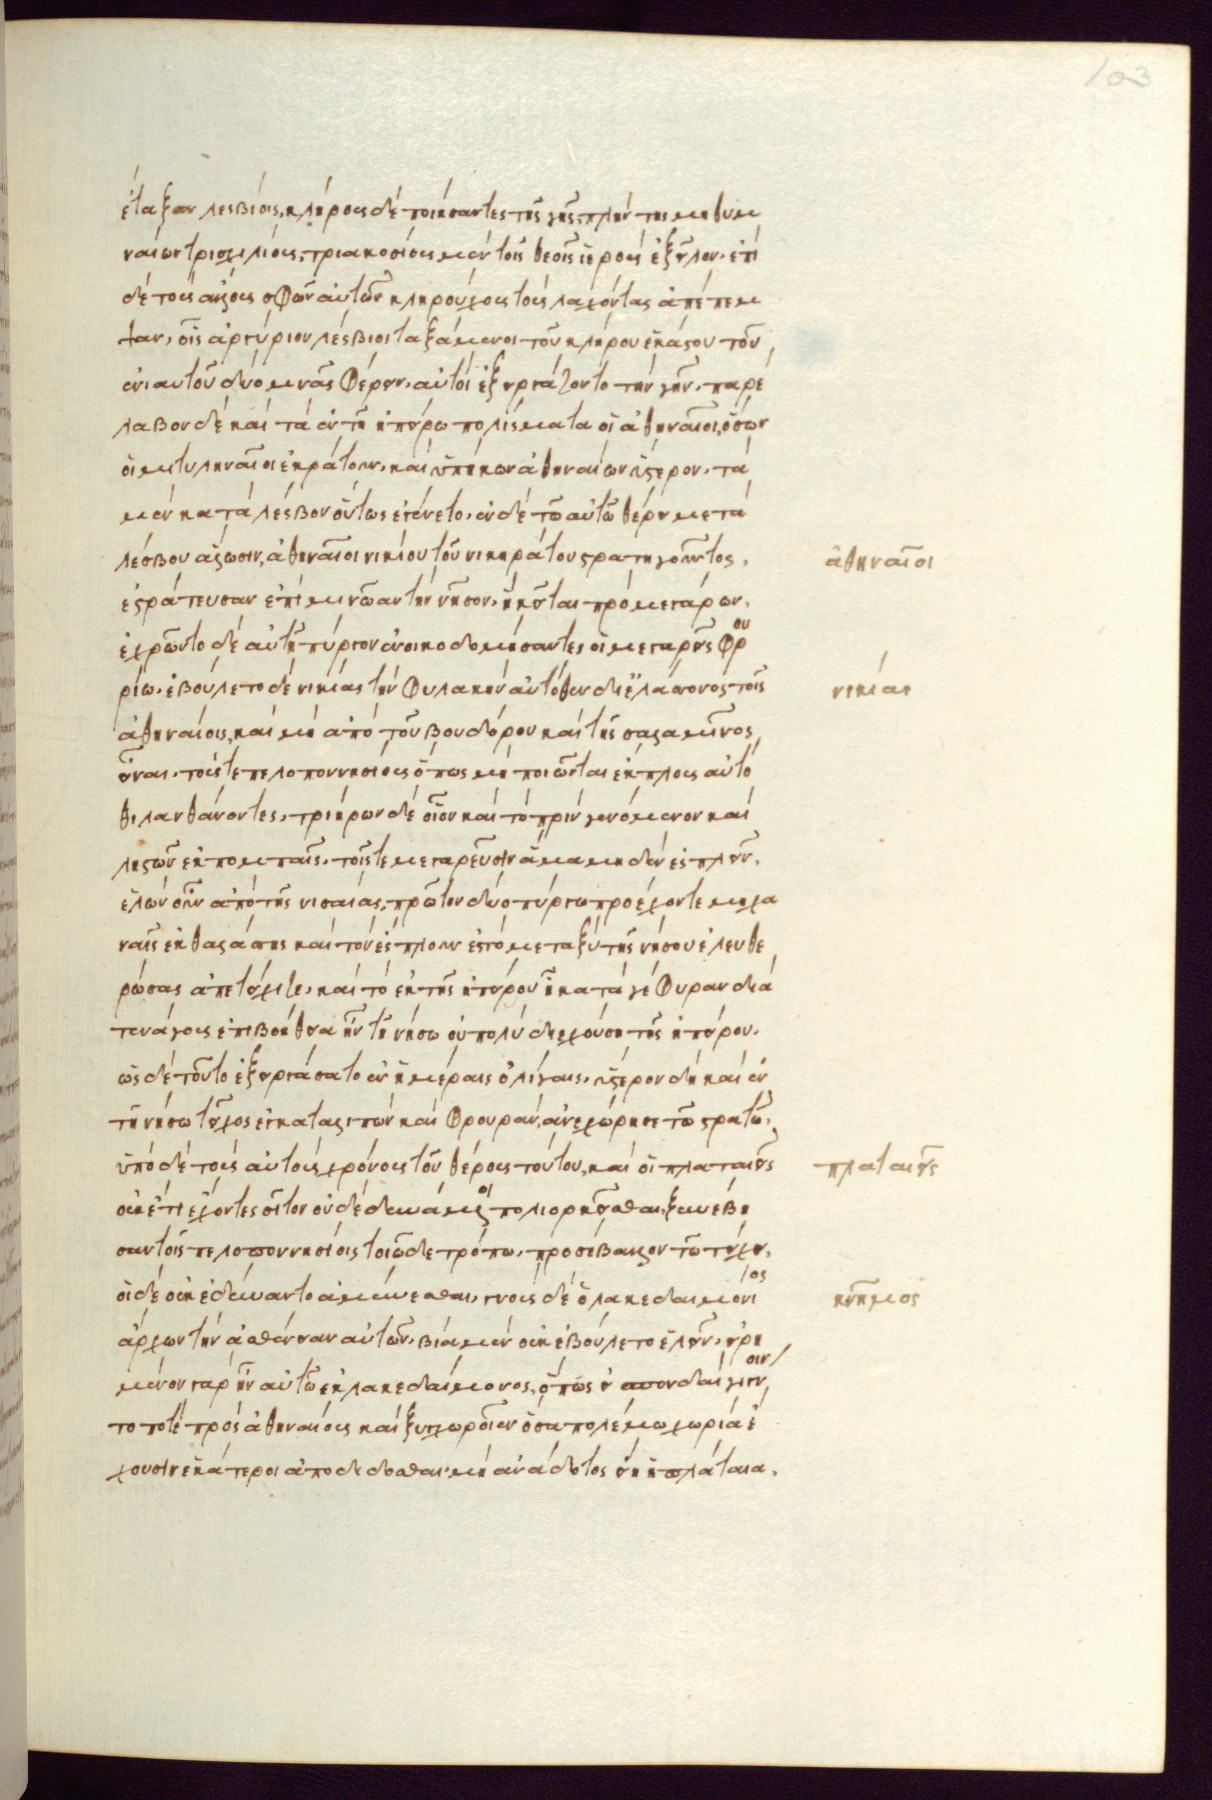 103
ἔταξαν λεσβίοις, κλήρους δὲ ποιήσαντες τῆς γῆς, πλὴν τῆς μηθυμ
ναίων τρισχιλίους, τριακοσίους μὲν τοῖς θεοῖς ἱεροὺς ἐξεῖλον. ἐπὶ
δὲ τοὺς ἄλλους σφῶν αὐτῶν κληρούχους τοὺς λαχόντας ἀπέπεμ
ψαν, οἷς ἀργύριον λέσβιοι ταξάμενοι τοῦ κλήρου ἑκάστου τοῦ
ἐνιαυτοῦ δύο μνᾶς φέρειν. αὐτοὶ ἐξειργάζοντο τὴν γῆν. παρέ
λαβον δὲ καὶ τὰ ἐν τῇ ἠπείρω πολίσματα οἱ ἀθηναῖοι, ὅσων
οἱ μιτυληναῖοι ἐκράτουν. καὶ ὑπήκουον ἀθηναίων ὕστερον. τὰ
μὲν κατὰ λέσβον οὕτως ἐγένετο. ἐν δὲ τῶ αὐτῶ θέρει μετὰ
λέσβου ἅλωσιν, ἀθηναῖοι νικίου τοῦ νικηράτου στρατηγοῦντος,
ἀθηναῖοι
ἐστράτευσαν ἐπὶ μινῶαν τὴν νῆσον. ἣ κεῖται πρὸ μεγάρων.
ἐχρῶντο δὲ αὐτῇ πύργον ἐνοικοδομήσαντες οἱ μεγαρεῖς φρου
ρίω. ἐβούλετο δὲ νικίας τὴν φυλακὴν αὐτόθεν δι' ἐλάσσονος τοῖς
νικίας
ἀθηναίοις, καὶ μὴ ἀπὸ τοῦ βουδόρου καὶ τῆς σαλαμῖνος
εἶναι. τούς τε πελοποννησίους ὅπως μὴ ποιῶνται ἔκπλους αὐτό
θι λανθάνοντες. τριήρων δὲ οἷον καὶ τὸ πρὶν γενόμενον καὶ
ληστῶν ἐκπομπαῖς. τοῖς τε μεγαρεῦσιν ἅμα μηδὲν ἐσπλεῖν.
ἑλὼν οὖν ἀπὸ τῆς νισαίας, πρῶτον δύο πύργω προέχοντε μηχα
ναῖς ἐκ θαλάσσης καὶ τὸν ἔσπλουν ἐς τὸ μεταξὺ τῆς νήσου ἐλευθε
ρώσας ἀπετείχιζε, καὶ τὸ ἐκ τῆς ἠπείρου ᾗ κατὰ γέφυραν διὰ
τενάγους ἐπιβοήθεια ἦν τῇ νήσω οὐ πολὺ διεχούσῃ τῆς ἠπείρου.
ὡς δὲ τοῦτο ἐξειργάσατο ἐν ἡμέραις ὀλίγαις, ὕστερον δὴ καὶ ἐν
τῇ νήσω τεῖχος ἐγκαταλιπὼν καὶ φρουράν, ἀνεχώρησε τῶ στρατῶ.
ὑπὸ δὲ τοὺς αὐτοὺς χρόνους τοῦ θέρους τούτου, καὶ οἱ πλαταιεῖς
πλαταιεῖς
οὐκέτι ἔχοντες σῖτον οὐδὲ δυνάμενοι πολιορκεῖσθαι, ξυνέβη
σαν τοῖς πελοποννησίοις τοιῶδε τρόπω. προσέβαλλον τῶ τείχει.
οἱ δὲ οὐκ ἐδύναντο ἀμύνεσθαι, γνοὺς δὲ ὁ λακεδαιμόνιος
ἄρχων τὴν ἀσθένειαν αὐτῶν, βία μὲν οὐκ ἐβούλετο ἑλεῖν. εἰρη
μένον γὰρ ἦν αὐτῶ ἐκ λακεδαίμονος, ὅπως εἰ σπονδαὶ γίγνοιν
το ποτὲ πρὸς ἀθηναίους καὶ ξυγχωροῖεν ὅσα πολέμω χωρία ἔ
χουσιν ἑκάτεροι ἀποδίδοσθαι. μὴ ἀνάδοτος εἴη ἡ πλάταια,